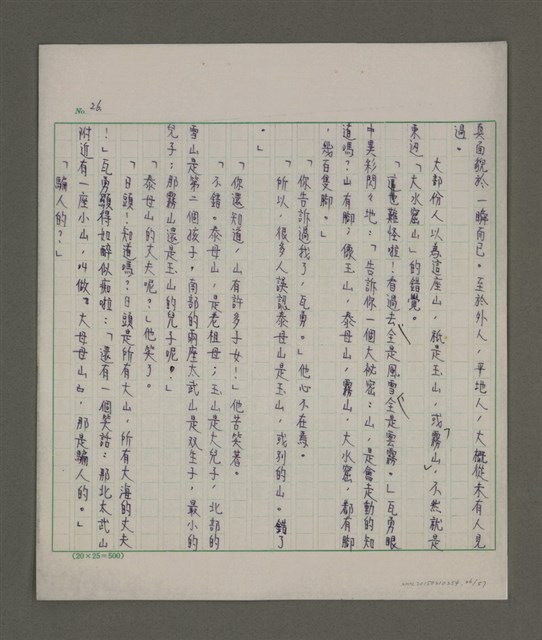 No. 26
真面貌於一瞬而已。至於外人,平地人,大概從未有人見
過。
大部份人以為這座山,祇是玉山,或霧山,不然就是
東边「大水窟山」的錯覺。
「這重難怪啦!看過去全是風雪全是雲霧。」瓦勇眼
中異彩閃々地:「告訴你一個大秘密:山,是會走動的知
道嗎?山有腳;像玉山,泰母山,霧山,大水窟,都有腳
,幾百隻腳。」
「你告訴過我了,瓦勇。」他心不在焉。
「所以,很多人誤認泰母山是玉山,或別的山。錯了
。」
「你還知道,山有許多子女!」他苦笑著。
「不錯。泰母山,是老祖母;玉山是大兒子,北部的
雪山是第二個孩子,南部的兩座太武山是双生子,最小的
兒子:那霧山還是玉山的兒子呢。」
「泰母山的丈夫呢?」他笑了。
「日頭!知道嗎?日頭是所有大山,所有大海的丈夫
!」瓦勇顯得如醉似痴啦:「還有一個笑話:那北太武山
附近有一座小山,叫做『大母母山』,那是騙人的。」
「騙人的?」
(20×25=500)